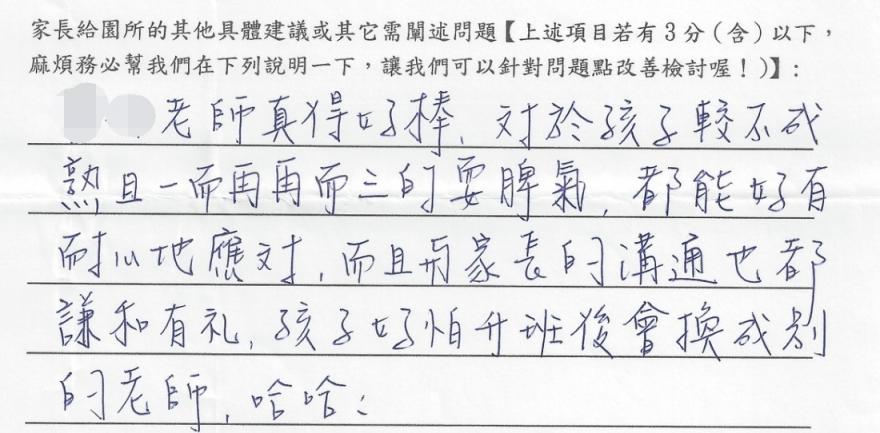 家長給園所的其他具體建議或其它需闡述問題【上述項目若有3分（含）以下，
麻煩務必幫我們在下列說明一下，讓我們可以針對問題點改善檢討喔！)】：
老師真得好棒，對於孩子較不成
熟且一而再再而三的耍脾氣，都能好有
耐心地應对，而且與家長的溝通也都
謙和有礼，孩子好怕升班後會換成别
的老師，哈哈：